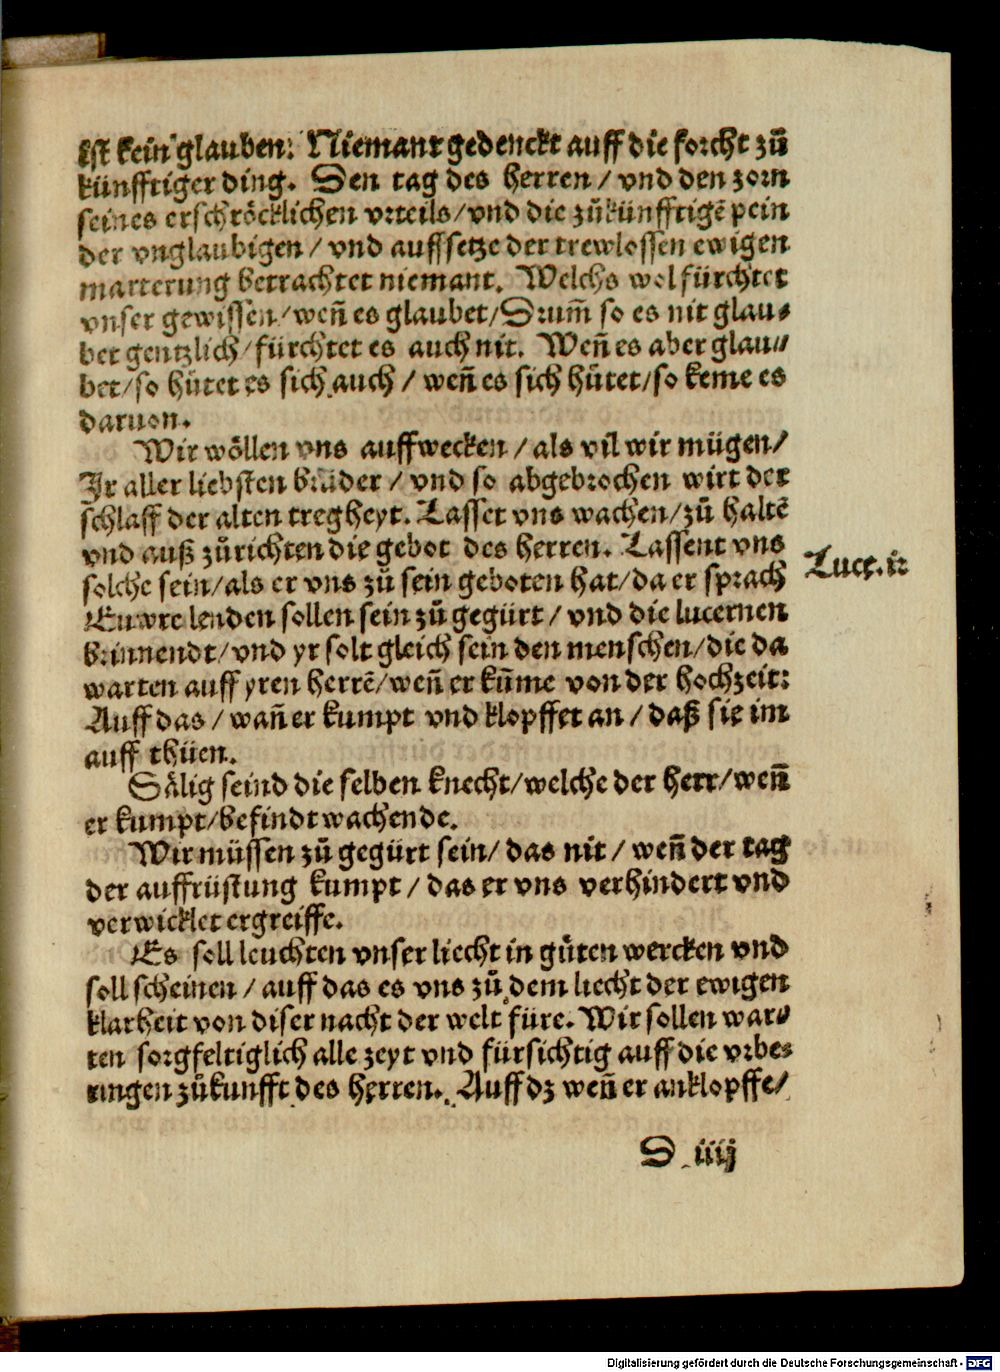 ist kein glauben: Niemant gedenckt auff die forcht zů
künfftiger ding. Den tag des herren / vnd den zorn
seines erschröcklichen vrteils / vnd die zůkünfftigē pein
der vnglaubigen / vnd auffsetze der trewlossen ewigen
marterung betrachtet niemant. Welchs wol fürchtet
vnser gewissen / weñ es glaubet / Drum̄ so es nit glau⸗
bet gentzlich / fürchtet es auch nit. Weñ es aber glau⸗
bet / so hütet es sich auch / weñ es sich hütet / so keme es
daruon.
Wir wöllen vns auffwecken / als vil wir mügen /
Ir aller liebsten brüder / vnd so abgebrochen wirt der
schlaff der alten tregheyt. Lasset vns wachen / zů haltē
vnd auß zůrichten die gebot des herren. Lassent vns
solche sein / als er vns zů sein geboten hat / da er sprach
Euwre lenden sollen sein zů gegürt / vnd die lucernen
brinnendt / vnd yr solt gleich sein den menschen / die da
warten auff yren herrē / weñ er kūme von der hochzeit:
Auff das / wañ er kumpt vnd klopffet an / daß sie im
auff thüen.
Sälig seind die selben knecht / welche der herr / weñ
er kumpt / befindt wachende.
Wir müssen zů gegürt sein / das nit / weñ der tag
der auffrüstung kumpt / das er vns verhindert vnd
verwicklet ergreiffe.
Es soll leuchten vnser liecht in gůten wercken vnd
soll scheinen / auff das es vns zů dem liecht der ewigen
klarheit von diser nacht der welt füre. Wir sollen war⸗
ten sorgfeltiglich alle zeyt vnd fürsichtig auff die vrbe⸗
ringen zůkunfft des herren. Auff dz weñ er anklopffe /
D iiij
Luce. 12
Digitalisierung gefördert durch die Deutsche Forschungsgemeinschaft - DFG